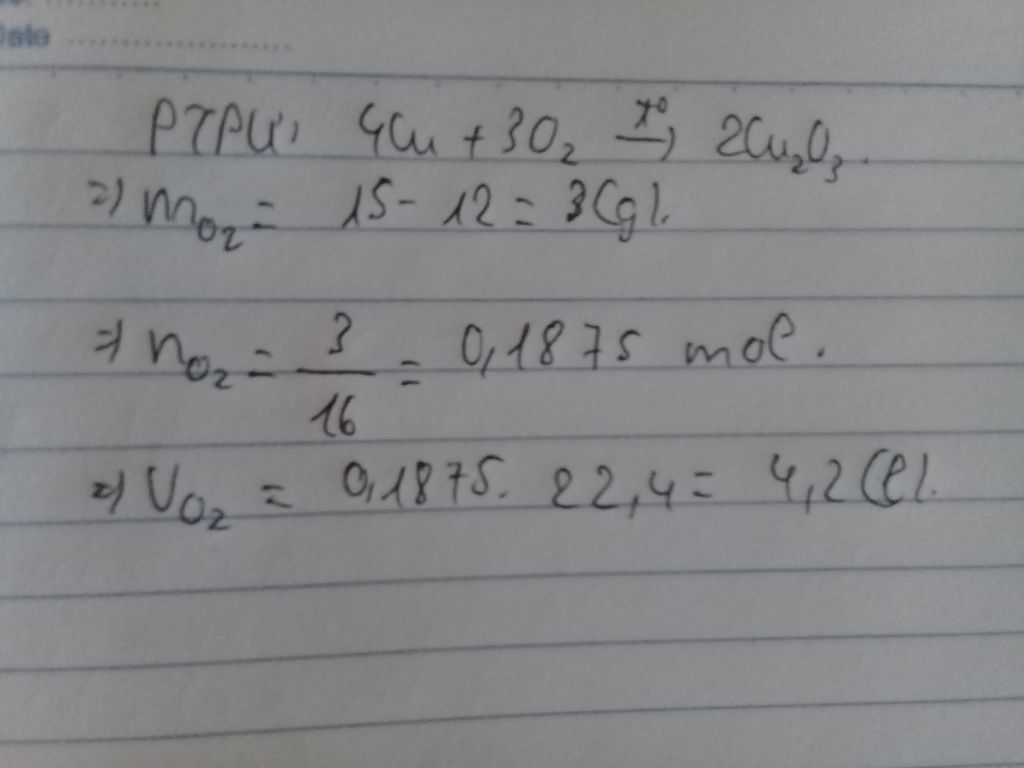 Date ..........
PTPƯ: 4Cu + 3O₂ –t°→ 2Cu₂O₃.
=) m_O₂ = 15 - 12 = 3(g).
=) n_O₂ = 3/16 = 0,1875 mol.
=) V_O₂ = 0,1875. 22,4 = 4,2(l).